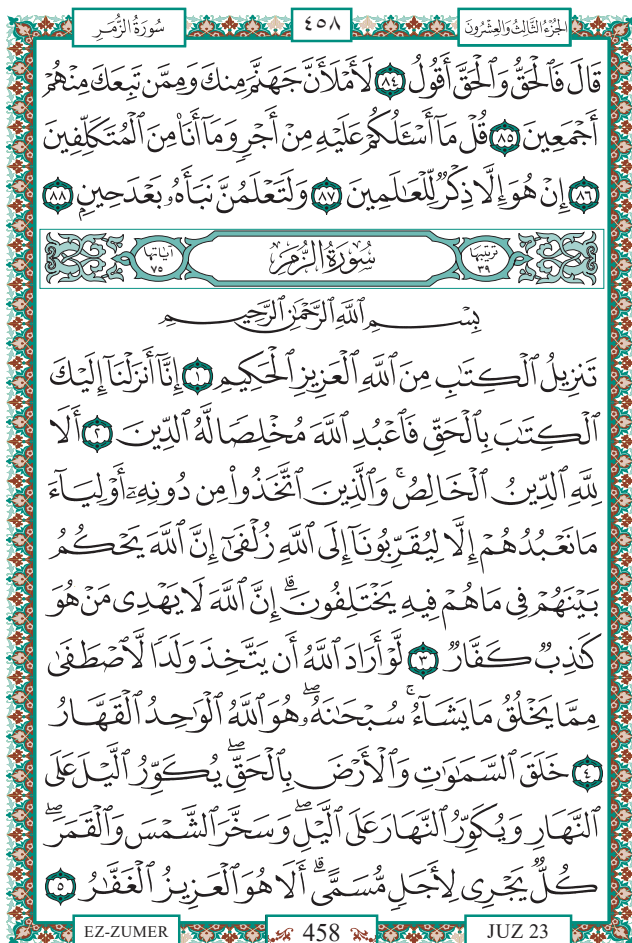 سُورَةُ الزُّمَرِ ٤٥٨ الجُزْءُ الثَّالِثُ وَالعِشْرُونَ
قَالَ فَٱلْحَقُّ وَٱلْحَقَّ أَقُولُ ٨٤ لَأَمْلَأَنَّ جَهَنَّمَ مِنكَ وَمِمَّن تَبِعَكَ مِنْهُمْ
أَجْمَعِينَ ٨٥ قُلْ مَآ أَسْـَٔلُكُمْ عَلَيْهِ مِنْ أَجْرٍ وَمَآ أَنَا۠ مِنَ ٱلْمُتَكَلِّفِينَ
٨٦ إِنْ هُوَ إِلَّا ذِكْرٌ لِّلْعَـٰلَمِينَ ٨٧ وَلَتَعْلَمُنَّ نَبَأَهُۥ بَعْدَ حِينٍۭ ٨٨
ترتيبها ٣٩ سُورَةُ الزُّمَرِ آياتها ٧٥
بِسْمِ ٱللَّهِ ٱلرَّحْمَـٰنِ ٱلرَّحِيمِ
تَنزِيلُ ٱلْكِتَـٰبِ مِنَ ٱللَّهِ ٱلْعَزِيزِ ٱلْحَكِيمِ ١ إِنَّآ أَنزَلْنَآ إِلَيْكَ
ٱلْكِتَـٰبَ بِٱلْحَقِّ فَٱعْبُدِ ٱللَّهَ مُخْلِصًا لَّهُ ٱلدِّينَ ٢ أَلَا
لِلَّهِ ٱلدِّينُ ٱلْخَالِصُ ۚ وَٱلَّذِينَ ٱتَّخَذُوا۟ مِن دُونِهِۦٓ أَوْلِيَآءَ
مَا نَعْبُدُهُمْ إِلَّا لِيُقَرِّبُونَآ إِلَى ٱللَّهِ زُلْفَىٰٓ إِنَّ ٱللَّهَ يَحْكُمُ
بَيْنَهُمْ فِى مَا هُمْ فِيهِ يَخْتَلِفُونَ ۗ إِنَّ ٱللَّهَ لَا يَهْدِى مَنْ هُوَ
كَـٰذِبٌ كَفَّارٌ ٣ لَّوْ أَرَادَ ٱللَّهُ أَن يَتَّخِذَ وَلَدًا لَّٱصْطَفَىٰ
مِمَّا يَخْلُقُ مَا يَشَآءُ ۚ سُبْحَـٰنَهُۥ ۖ هُوَ ٱللَّهُ ٱلْوَٰحِدُ ٱلْقَهَّارُ
٤ خَلَقَ ٱلسَّمَـٰوَٰتِ وَٱلْأَرْضَ بِٱلْحَقِّ ۖ يُكَوِّرُ ٱلَّيْلَ عَلَى
ٱلنَّهَارِ وَيُكَوِّرُ ٱلنَّهَارَ عَلَى ٱلَّيْلِ ۖ وَسَخَّرَ ٱلشَّمْسَ وَٱلْقَمَرَ ۖ
كُلٌّ يَجْرِى لِأَجَلٍ مُّسَمًّى ۗ أَلَا هُوَ ٱلْعَزِيزُ ٱلْغَفَّـٰرُ ٥
EZ-ZUMER 458 JUZ 23